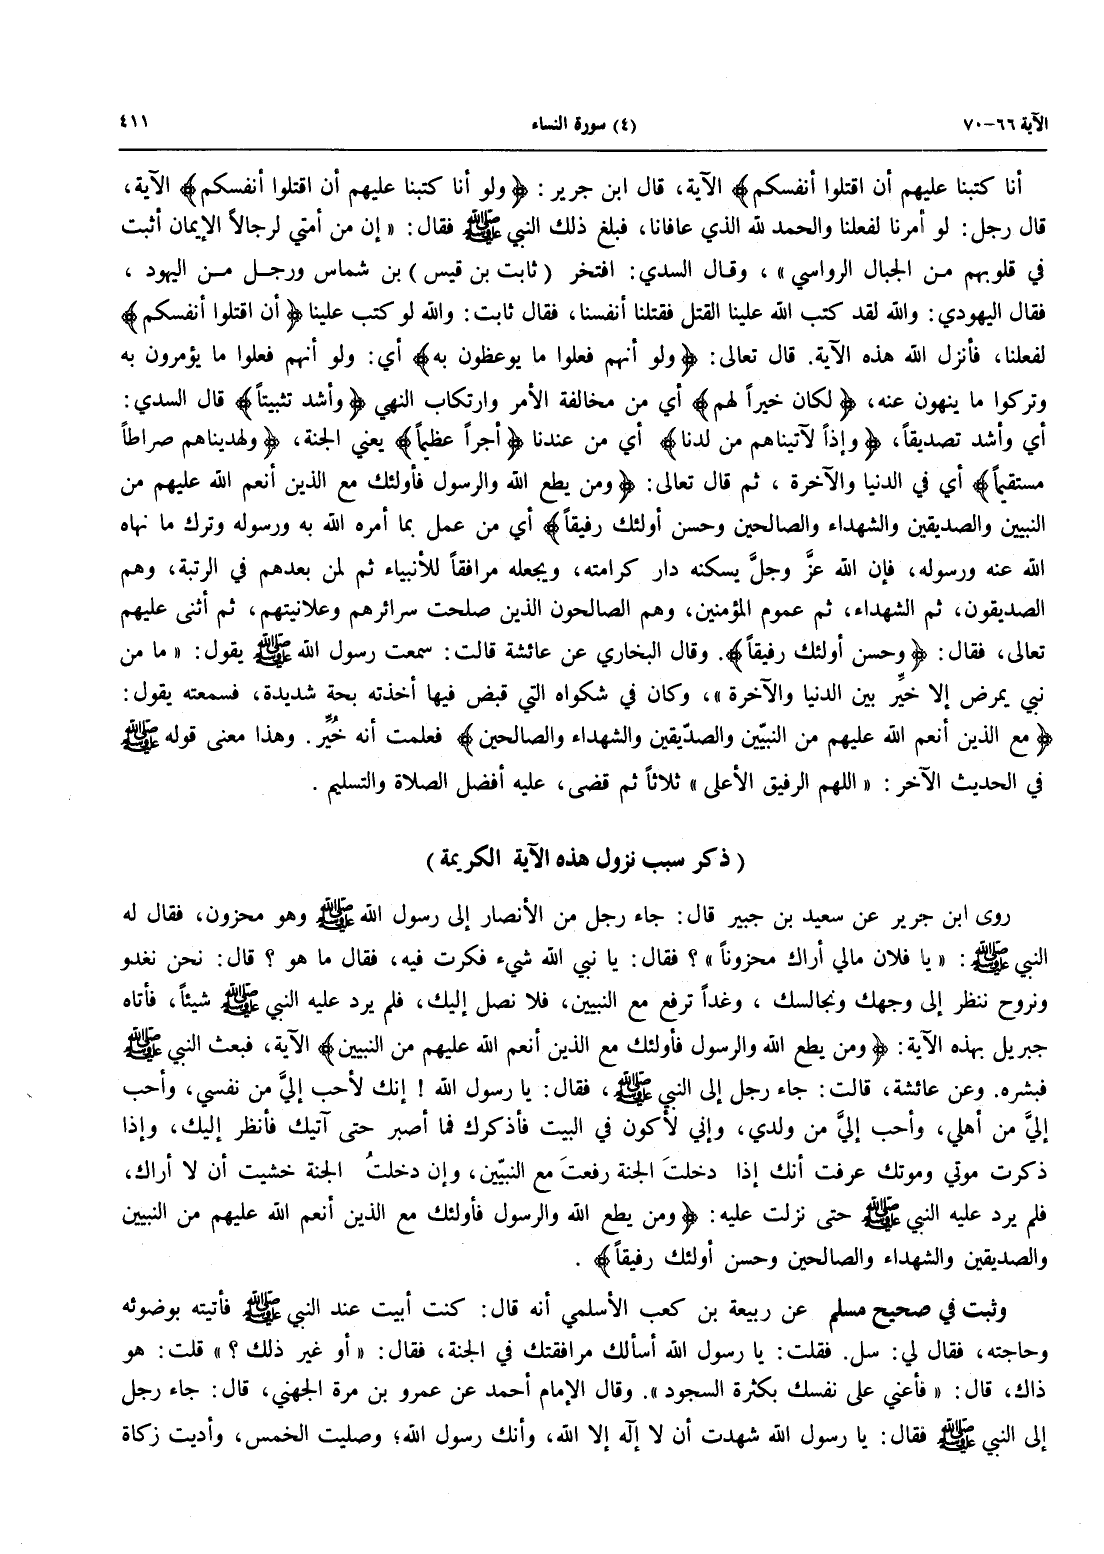 الآية ٦٦-٧٠ (٤) سورة النساء ٤١١
أنا كتبنا عليهم أن اقتلوا أنفسكم﴾ الآية، قال ابن جرير: ﴿ولو أنا كتبنا عليهم أن اقتلوا أنفسكم﴾ الآية،
قال رجل: لو أمرنا لفعلنا والحمد لله الذي عافانا، فبلغ ذلك النبي ﷺ فقال: «إن من أمتي لرجالاً الإيمان أثبت
في قلوبهم من الجبال الرواسي»، وقال السدي: افتخر (ثابت بن قيس) بن شماس ورجل من اليهود،
فقال اليهودي: والله لقد كتب الله علينا القتل فقتلنا أنفسنا، فقال ثابت: والله لو كتب علينا ﴿أن اقتلوا أنفسكم﴾
لفعلنا، فأنزل الله هذه الآية. قال تعالى: ﴿ولو أنهم فعلوا ما يوعظون به﴾ أي: ولو أنهم فعلوا ما يؤمرون به
وتركوا ما ينهون عنه، ﴿لكان خيراً لهم﴾ أي من مخالفة الأمر وارتكاب النهي ﴿وأشد تثبيتاً﴾ قال السدي:
أي وأشد تصديقاً، ﴿وإذاً لآتيناهم من لدنا﴾ أي من عندنا ﴿أجراً عظيماً﴾ يعني الجنة، ﴿ولهديناهم صراطاً
مستقيماً﴾ أي في الدنيا والآخرة، ثم قال تعالى: ﴿ومن يطع الله والرسول فأولئك مع الذين أنعم الله عليهم من
النبيين والصديقين والشهداء والصالحين وحسن أولئك رفيقاً﴾ أي من عمل بما أمره الله به ورسوله وترك ما نهاه
الله عنه ورسوله، فإن الله عزَّ وجلَّ يسكنه دار كرامته، ويجعله مرافقاً للأنبياء ثم لمن بعدهم في الرتبة، وهم
الصديقون، ثم الشهداء، ثم عموم المؤمنين، وهم الصالحون الذين صلحت سرائرهم وعلانيتهم، ثم أثنى عليهم
تعالى، فقال: ﴿وحسن أولئك رفيقاً﴾. وقال البخاري عن عائشة قالت: سمعت رسول الله ﷺ يقول: «ما من
نبي يمرض إلا خيِّر بين الدنيا والآخرة»، وكان في شكواه التي قبض فيها أخذته بحة شديدة، فسمعته يقول:
﴿مع الذين أنعم الله عليهم من النبيّين والصدّيقين والشهداء والصالحين﴾ فعلمت أنه خُيِّر. وهذا معنى قوله ﷺ
في الحديث الآخر: «اللهم الرفيق الأعلى» ثلاثاً ثم قضى، عليه أفضل الصلاة والتسليم.
(ذكر سبب نزول هذه الآية الكريمة)
روى ابن جرير عن سعيد بن جبير قال: جاء رجل من الأنصار إلى رسول الله ﷺ وهو محزون، فقال له
النبي ﷺ: «يا فلان مالي أراك محزوناً»؟ فقال: يا نبي الله شيء فكرت فيه، فقال ما هو؟ قال: نحن نغدو
ونروح ننظر إلى وجهك ونجالسك، وغداً ترفع مع النبيين، فلا نصل إليك، فلم يرد عليه النبي ﷺ شيئاً، فأتاه
جبريل بهذه الآية: ﴿ومن يطع الله والرسول فأولئك مع الذين أنعم الله عليهم من النبيين﴾ الآية، فبعث النبي ﷺ
فبشره. وعن عائشة، قالت: جاء رجل إلى النبي ﷺ، فقال: يا رسول الله! إنك لأحب إليَّ من نفسي، وأحب
إليَّ من أهلي، وأحب إليَّ من ولدي، وإني لأكون في البيت فأذكرك فما أصبر حتى آتيك فأنظر إليك، وإذا
ذكرت موتي وموتك عرفت أنك إذا دخلتَ الجنة رفعتَ مع النبيّين، وإن دخلتُ الجنة خشيت أن لا أراك،
فلم يرد عليه النبي ﷺ حتى نزلت عليه: ﴿ومن يطع الله والرسول فأولئك مع الذين أنعم الله عليهم من النبيين
والصديقين والشهداء والصالحين وحسن أولئك رفيقاً﴾.
وثبت في صحيح مسلم عن ربيعة بن كعب الأسلمي أنه قال: كنت أبيت عند النبي ﷺ فأتيته بوضوئه
وحاجته، فقال لي: سل. فقلت: يا رسول الله أسألك مرافقتك في الجنة، فقال: «أو غير ذلك؟» قلت: هو
ذاك، قال: «فأعني على نفسك بكثرة السجود». وقال الإمام أحمد عن عمرو بن مرة الجهني، قال: جاء رجل
إلى النبي ﷺ فقال: يا رسول الله شهدت أن لا إلّه إلا الله، وأنك رسول الله؛ وصليت الخمس، وأديت زكاة